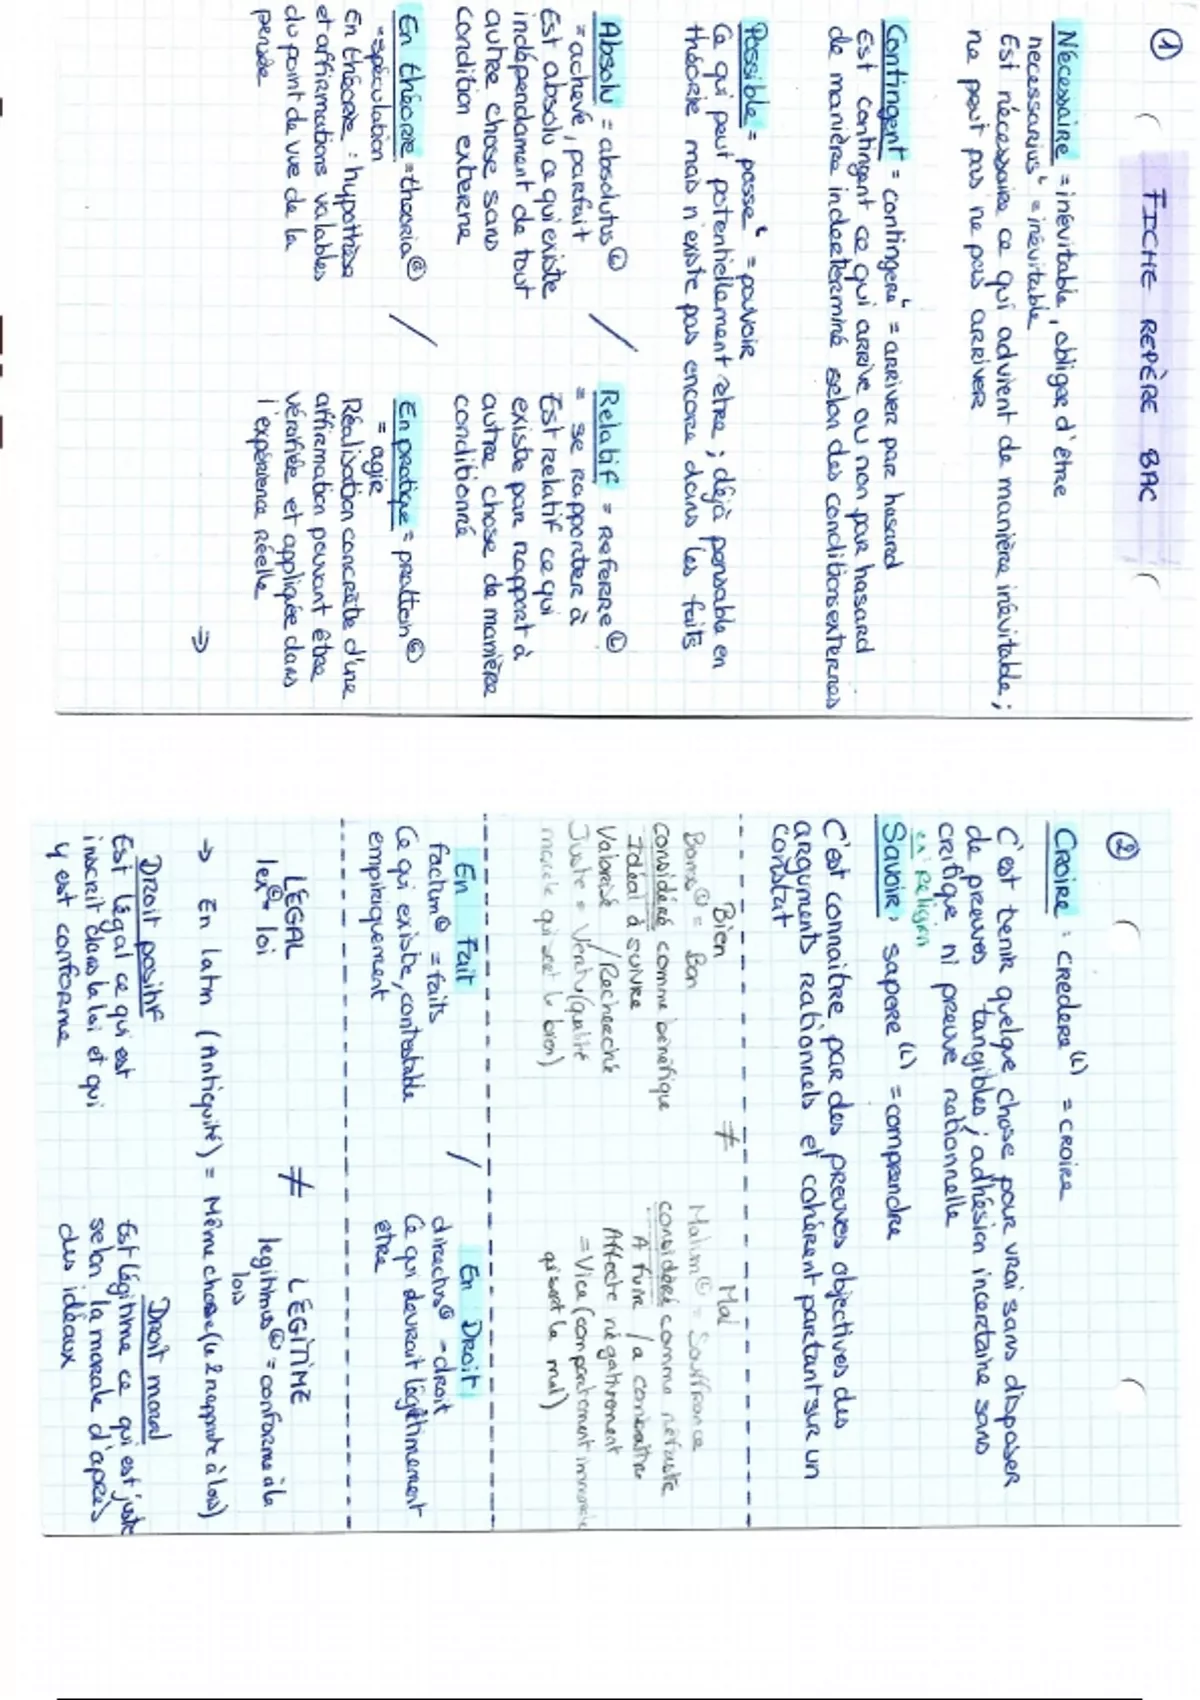 ①
FICHE REPÈRE BAC
Nécessaire = inévitable, obligé d'être
necessarius ᴸ = inévitable
Est nécessaire ce qui advient de manière inévitable ;
ne peut pas ne pas arriver
Contingent = contingere ᴸ = arriver par hasard
Est contingent ce qui arrive ou non par hasard
de manière indéterminé selon des conditions externes
Possible = posse ᴸ = pouvoir
Ce qui peut potentiellement être ; déjà pensable en
théorie mais n'existe pas encore dans les faits
Absolu = absolutus Ⓛ
= achevé, parfait
Est absolu ce qui existe
indépendament de tout
autre chose sans
condition externe
/
Relatif = referre Ⓛ
= se rapporter à
Est relatif ce qui
existe par rapport à
autre chose de manière
conditionné
En théorie = theoria Ⓖ
= spéculation
En théorie : hypothèse
et affirmations valables
du point de vue de la
pensée
/
En pratique = prattein Ⓖ
= agir
Réalisation concrète d'une
affirmation pouvant être
vérifiée et appliquée dans
l'expérience réelle
⇒
②
Croire : credere (L) = croire
C'est tenir quelque chose pour vrai sans disposer
de preuves tangibles ; adhésion incertaine sans
critique ni preuve rationnelle
ex : Religion
Savoir : sapere (L) = comprendre
C'est connaître par des preuves objectives des
arguments rationnels et cohérent partant sur un
constat
Bien
Bonus Ⓛ = Bon
considéré comme bénéfique
Idéal à suivre
Valorisé / Recherché
Juste = Vertu (qualité
morale qui sert le bien)
≠
Mal
Malum Ⓛ = Souffrance
considéré comme néfaste
A fuir / a combattre
Affecte négativement
= Vice (comportement immorale
qui sert le mal)
En Fait
factum Ⓛ = faits
Ce qui existe, contestable
empiriquement
/
En Droit
directus Ⓛ = droit
Ce qui devrait légitimement
être
LEGAL
lex Ⓛ = loi
≠
LEGITIME
legitimus Ⓛ = conforme à la
lois
→ En latin (Antiquité) = Même chose (le 2 rapporte à lois)
Droit positif
Est légal ce qui est
inscrit dans la loi et qui
y est conforme
Droit moral
Est légitime ce qui est juste
selon la morale d'après
des idéaux